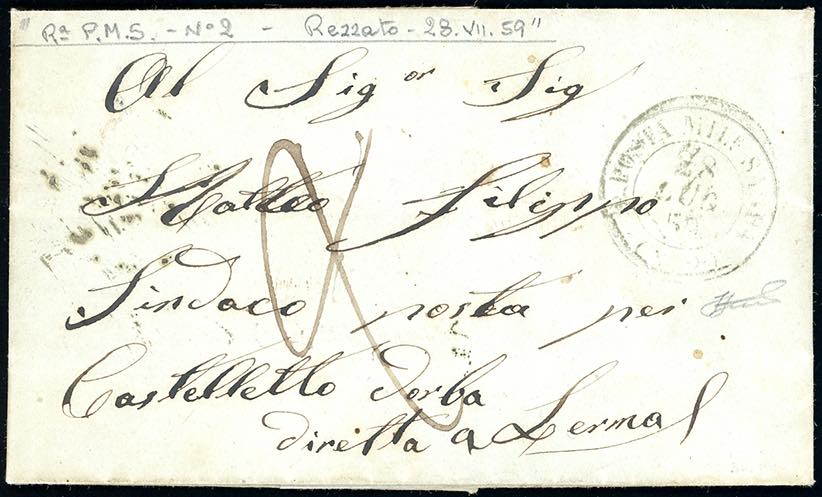 "Rª P.M.S. - Nº 2 - Rezzato - 28.VII.59"
Al Sig or Sig
Matteo Filippo
Sindaco posta per
Castelletto dorba
diretta a Lerma
POSTA MILE SARDA
28
LUG
59